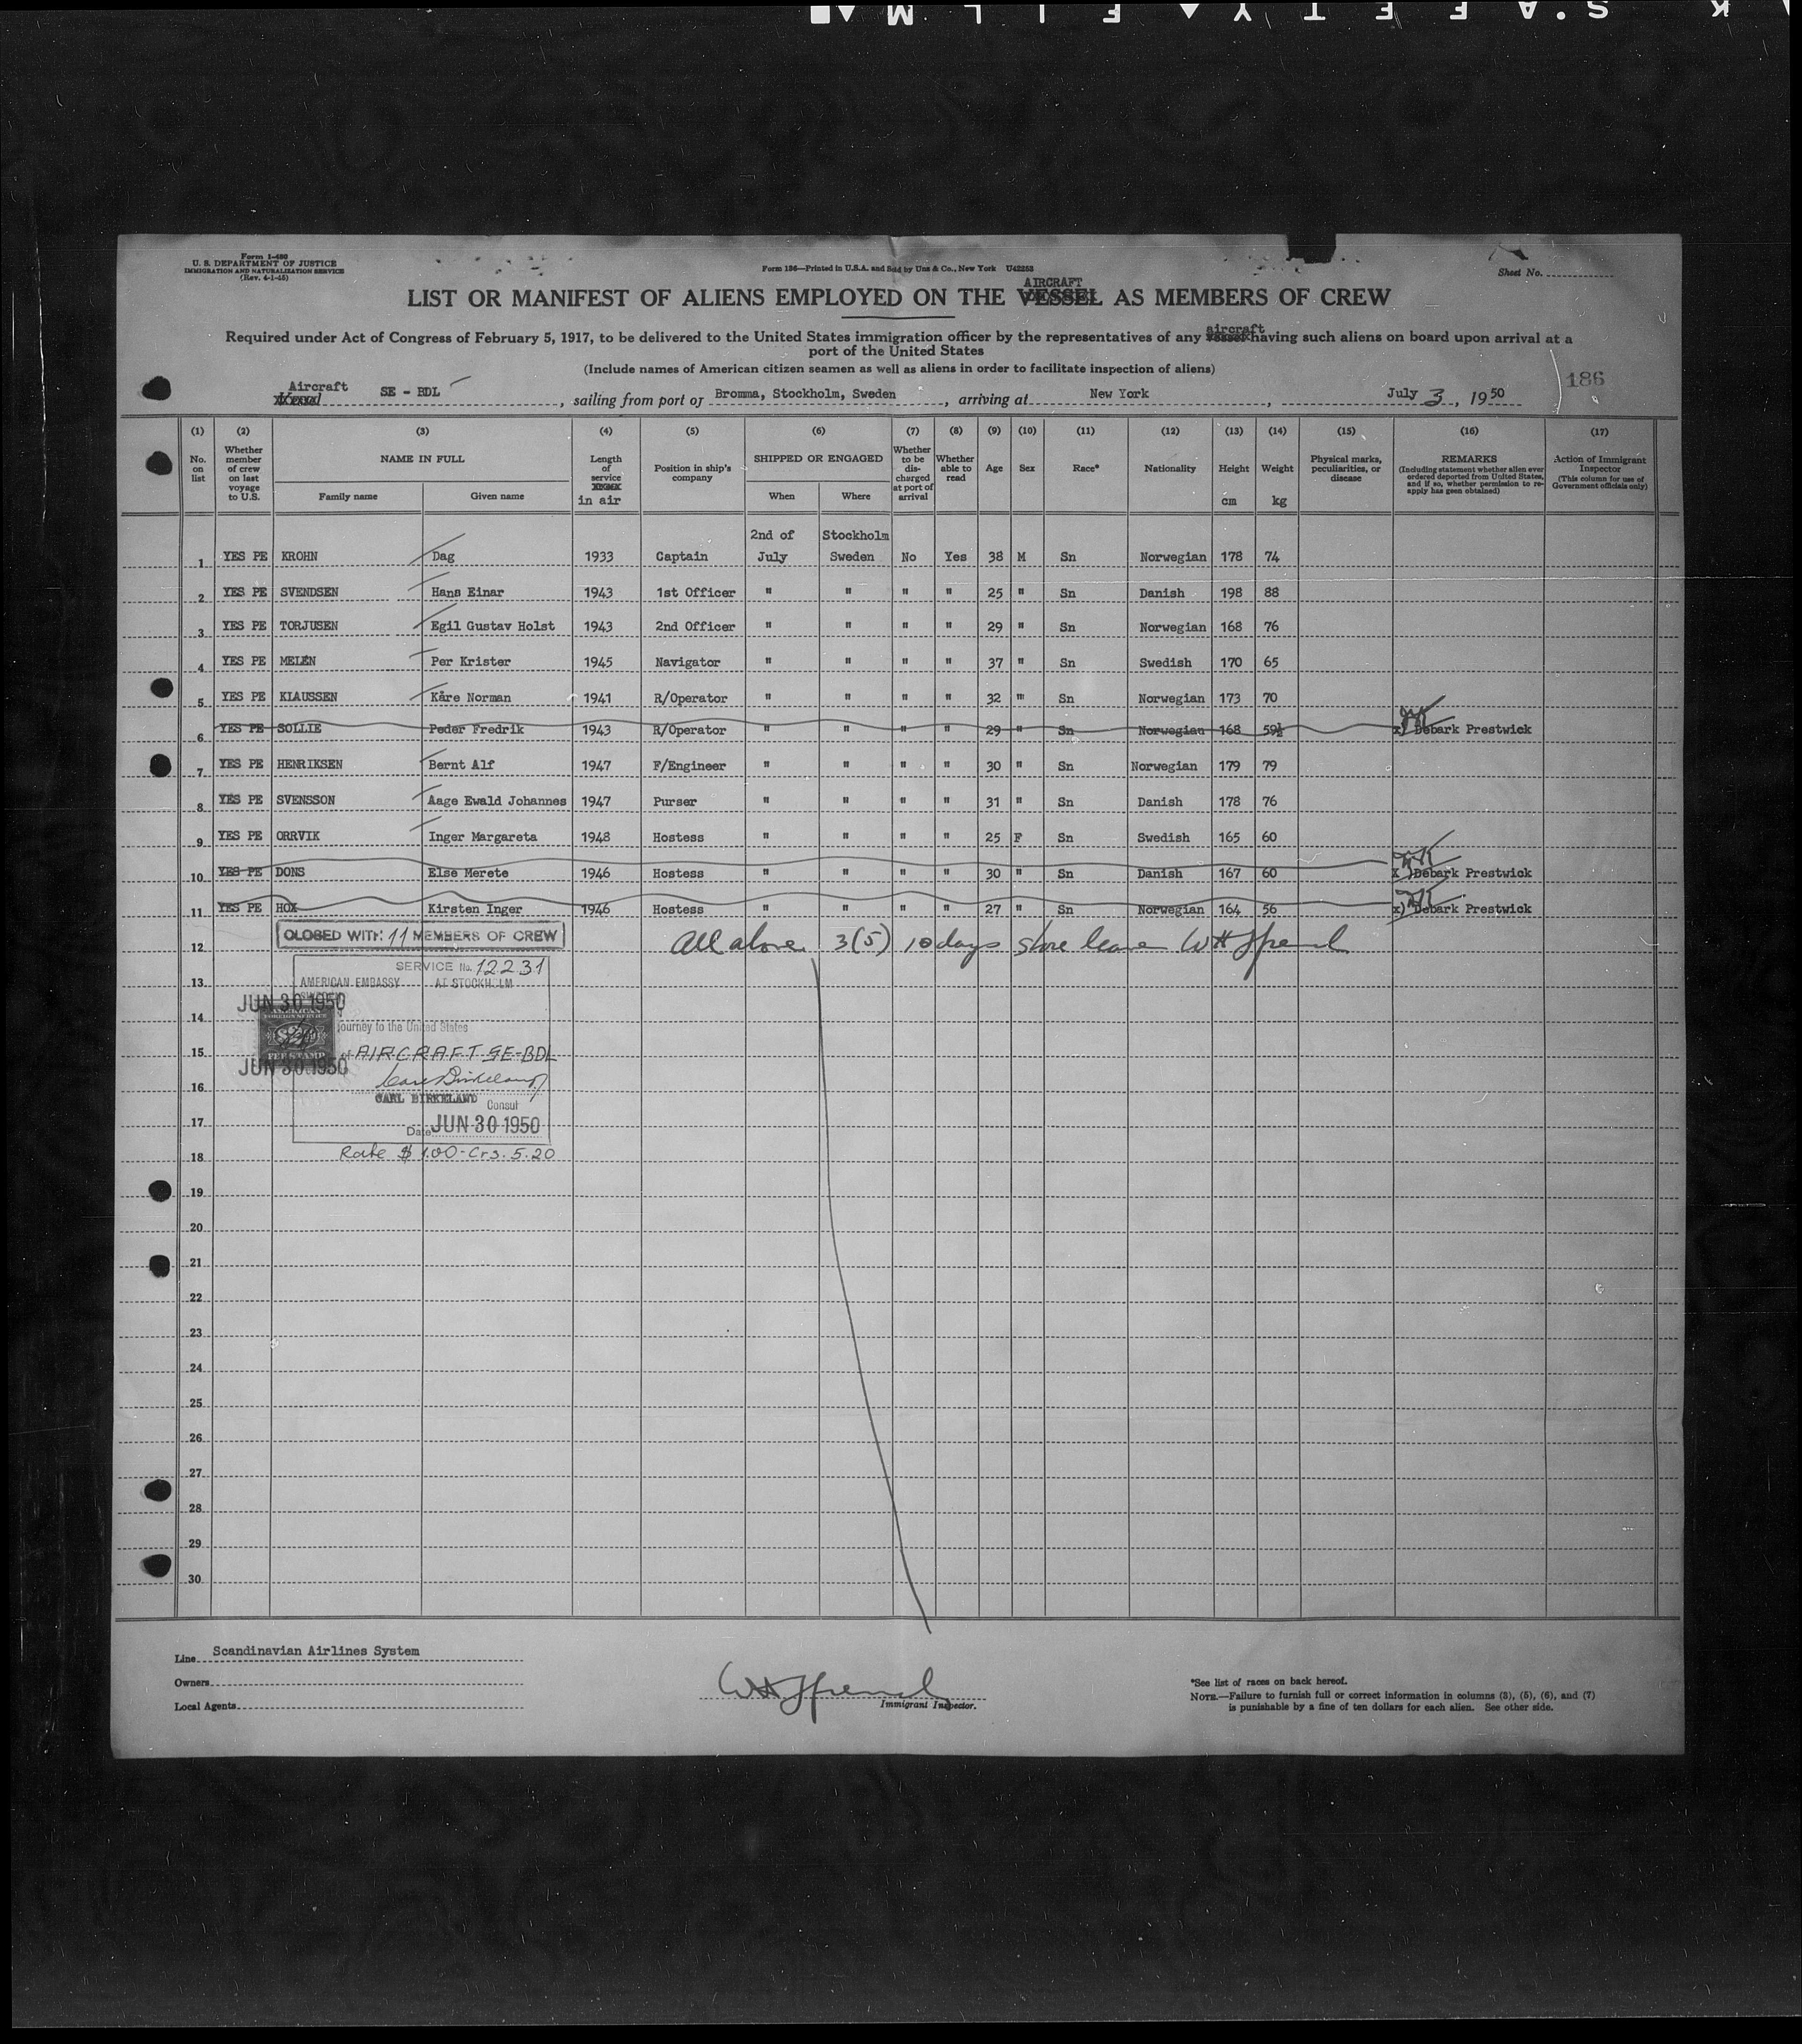 SAFETY FILM
Form I-480
U. S. DEPARTMENT OF JUSTICE
IMMIGRATION AND NATURALIZATION SERVICE
(Rev. 4-1-45)
Form 136—Printed in U.S.A. and Sold by Unz & Co., New York U42253
Sheet No.
AIRCRAFT
LIST OR MANIFEST OF ALIENS EMPLOYED ON THE VESSEL AS MEMBERS OF CREW
aircraft
Required under Act of Congress of February 5, 1917, to be delivered to the United States immigration officer by the representatives of any vessel having such aliens on board upon arrival at a
port of the United States
(Include names of American citizen seamen as well as aliens in order to facilitate inspection of aliens)
186
Aircraft
Vessel SE - BDL, sailing from port of Bromma, Stockholm, Sweden, arriving at New York, July 3, 1950
(1) (2) (3) (4) (5) (6) (7) (8) (9) (10) (11) (12) (13) (14) (15) (16) (17)
No. on list
Whether member of crew on last voyage to U.S.
NAME IN FULL
Family name Given name
Length of service in air
Position in ship's company
SHIPPED OR ENGAGED
When Where
Whether to be discharged at port of arrival
Whether able to read
Age
Sex
Race*
Nationality
Height cm
Weight kg
Physical marks, peculiarities, or disease
REMARKS
(Including statement whether alien ever ordered deported from United States, and if so, whether permission to re-apply has geen obtained)
Action of Immigrant Inspector
(This column for use of Government officials only)
2nd of Stockholm
1 YES PE KROHN Dag 1933 Captain July Sweden No Yes 38 M Sn Norwegian 178 74
2 YES PE SVENDSEN Hans Einar 1943 1st Officer " " " " 25 " Sn Danish 198 88
3 YES PE TORJUSEN Egil Gustav Holst 1943 2nd Officer " " " " 29 " Sn Norwegian 168 76
4 YES PE MELÉN Per Krister 1945 Navigator " " " " 37 " Sn Swedish 170 65
5 YES PE KLAUSSEN Kåre Norman 1941 R/Operator " " " " 32 " Sn Norwegian 173 70
6 YES PE SOLLIE Peder Fredrik 1943 R/Operator " " " " 29 " Sn Norwegian 168 59½ x) Debark Prestwick
7 YES PE HENRIKSEN Bernt Alf 1947 F/Engineer " " " " 30 " Sn Norwegian 179 79
8 YES PE SVENSSON Aage Ewald Johannes 1947 Purser " " " " 31 " Sn Danish 178 76
9 YES PE ORRVIK Inger Margareta 1948 Hostess " " " " 25 F Sn Swedish 165 60
10 YES PE DONS Else Merete 1946 Hostess " " " " 30 " Sn Danish 167 60 x) Debark Prestwick
11 YES PE HOX Kirsten Inger 1946 Hostess " " " " 27 " Sn Norwegian 164 56 x) Debark Prestwick
CLOSED WITH 11 MEMBERS OF CREW
12 All above 3(5) 10 days shore leave WH French
SERVICE No. 12231
13 AMERICAN EMBASSY AT STOCKHOLM
JUN 30 1950
14 AMERICAN
FOREIGN SERVICE
journey to the United States
15 FEE STAMP of AIRCRAFT SE-BDL
JUN 30 1950
16 Carl Birkeland
CARL BIRKELAND
Consul
17 Date JUN 30 1950
18 Rate $ 1.00 - Crs. 5.20
19
20
21
22
23
24
25
26
27
28
29
30
Line Scandinavian Airlines System
Owners
Local Agents
WH French
Immigrant Inspector.
*See list of races on back hereof.
NOTE.—Failure to furnish full or correct information in columns (3), (5), (6), and (7)
is punishable by a fine of ten dollars for each alien. See other side.